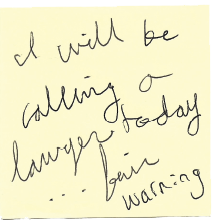 I will be
calling a
lawyer today
... fair
warning